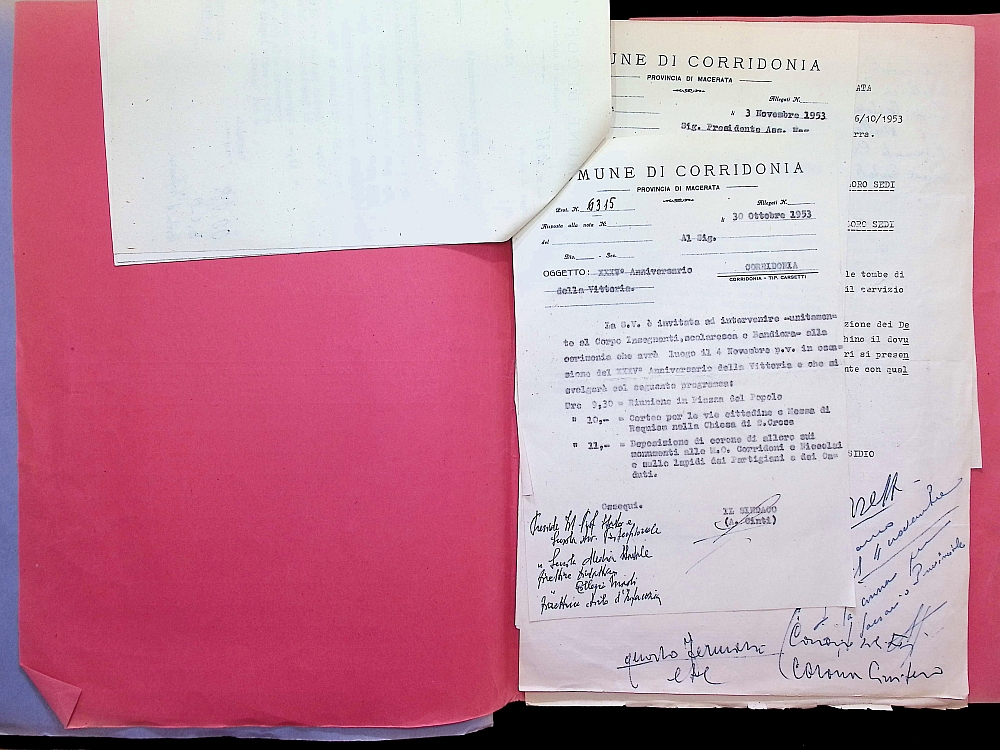 UNE DI CORRIDONIA
PROVINCIA DI MACERATA
Allegati N.
lì 3 Novembre 1953
Sig. Presidente Ass. Na=
MUNE DI CORRIDONIA
PROVINCIA DI MACERATA
Prot. N. 6315
Allegati N.
Risposta alla nota N.
lì 30 Ottobre 1953
del
Al Sig.
Div. - Sez.
OGGETTO: XXXVº Anniversario
della Vittoria.
CORRIDONIA
CORRIDONIA - TIP. CARSETTI
La S.V. è invitata ad intervenire =unitamen=
te al Corpo Insegnanti,scolaresca e Bandiera= alla
cerimonia che avrà luogo il 4 Novembre p.v. in occa=
sione del XXXVº Anniversario della Vittoria e che si
svolgerà col seguente programma:
Ore 9,30 = Riunione in Piazza del Popolo
" 10,-- = Corteo per le vie cittadine e Messa di
Requiem nella Chiesa di S.Croce
" 11,-- = Deposizione di corone di alloro sui
monumenti alle M.O. Corridoni e Niccolai
e sulle lapidi dei Partigiani e dei Ca=
duti.
Ossequi.
IL SINDACO
(A. Cinti)
Preside
Scuola Media Statale
Direttore
Direttrice Asilo d'Infanzia
ATA
6/10/1953
rra.
LORO SEDI
LORO SEDI
le tombe di
il servizio
zione dei De
hino il dovu
ri si presen
nte con qual
SIDIO
4 novembre
Corona Cimitero